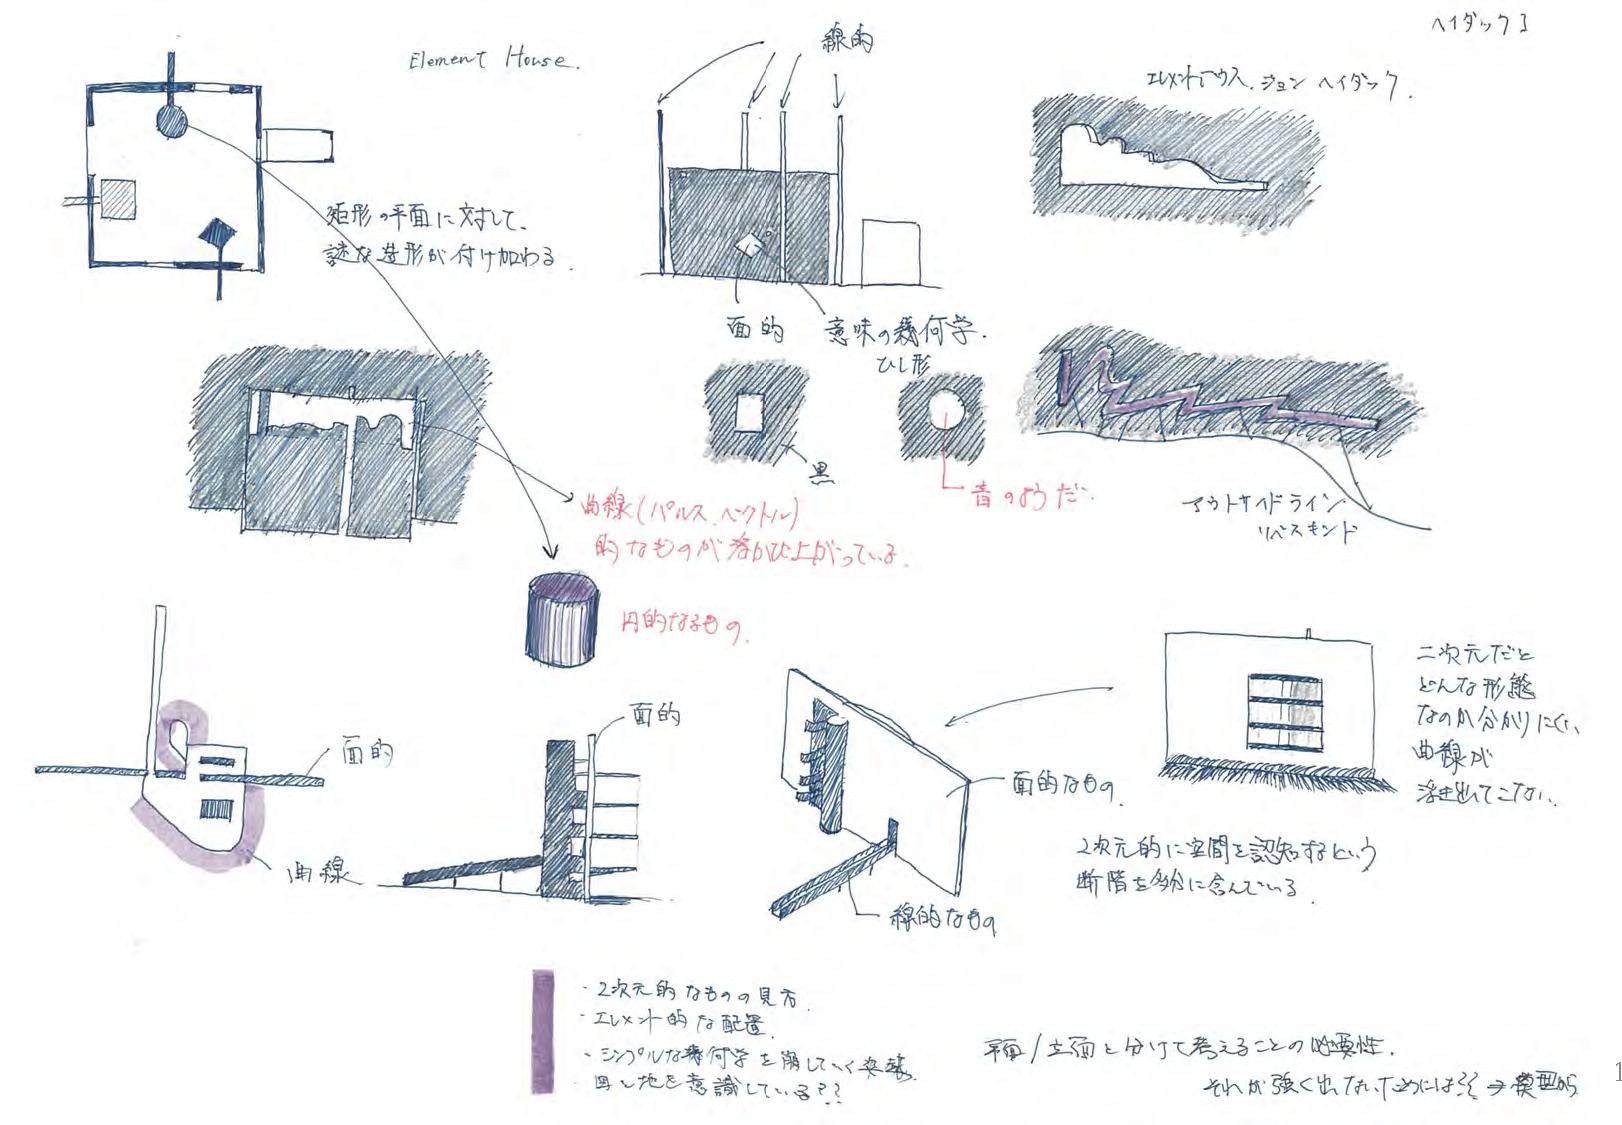 ヘイダック I
Element House.
線的
エレメントハウス. ジョン ヘイダック.
矩形の平面に対して、
謎な造形が付け加わる.
面的
意味の幾何学.
ひし形
黒
音のようだ.
アウトサイドライン
リベスキンド
曲線(パルス、ベクトル)
的なものが浮かび上がっている.
円的なるもの.
面的
面的
曲線
面的なもの.
線的なもの
二次元だと
どんな形態
なのか分かりにくい、
曲線が
浮き出てこない.
2次元的に空間を認知するという
断階を多分に含んでいる.
・2次元的なものの見方.
・エレメント的な配置.
・シンプルな幾何学を崩していく
図と地を意識している??
平面/立面と分けて考えることの必要性.
それが強く出ないためには?? → 模型から
1